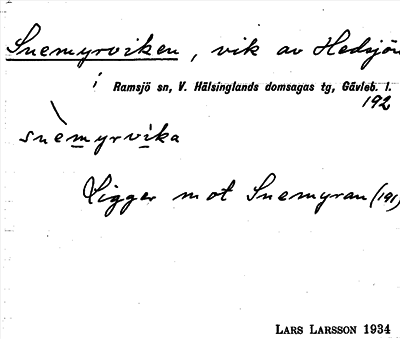 Snemyrviken, vik av Hedsjön
i Ramsjö sn, V. Hälsinglands domsagas tg, Gävleb. l.
192
snemyrvika
Ligger mot Snemyran (191)
LARS LARSSON 1934